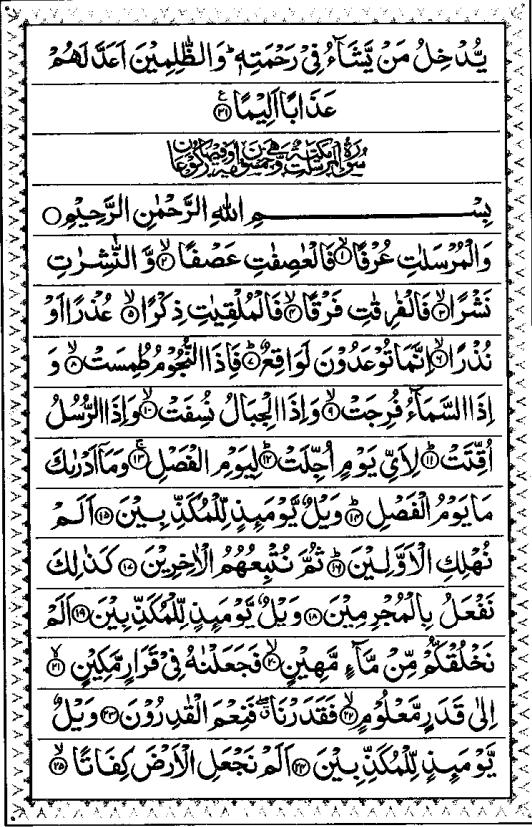 يُّدْخِلُ مَنْ يَّشَآءُ فِيْ رَحْمَتِهٖ ؕ وَالظّٰلِمِيْنَ اَعَدَّ لَهُمْ
عَذَابًا اَلِيْمًا ﴿۳۱﴾
سُوْرَةُ الْمُرْسَلٰتِ مَكِّيَّةٌ وَّهِيَ خَمْسُوْنَ اٰيَةً وَّفِيْهَا رُكُوْعَانِ
بِسْمِ اللّٰهِ الرَّحْمٰنِ الرَّحِيْمِ ○
وَالْمُرْسَلٰتِ عُرْفًا ﴿۱﴾ۙ فَالْعٰصِفٰتِ عَصْفًا ﴿۲﴾ۙ وَّالنّٰشِرٰتِ
نَشْرًا ﴿۳﴾ۙ فَالْفٰرِقٰتِ فَرْقًا ﴿۴﴾ۙ فَالْمُلْقِيٰتِ ذِكْرًا ﴿۵﴾ۙ عُذْرًا اَوْ
نُذْرًا ﴿۶﴾ۙ اِنَّمَا تُوْعَدُوْنَ لَوَاقِعٌ ﴿۷﴾ؕ فَاِذَا النُّجُوْمُ طُمِسَتْ ﴿۸﴾ۙ وَ
اِذَا السَّمَآءُ فُرِجَتْ ﴿۹﴾ۙ وَاِذَا الْجِبَالُ نُسِفَتْ ﴿۱۰﴾ۙ وَاِذَا الرُّسُلُ
اُقِّتَتْ ﴿۱۱﴾ؕ لِاَيِّ يَوْمٍ اُجِّلَتْ ﴿۱۲﴾ؕ لِيَوْمِ الْفَصْلِ ﴿۱۳﴾ۚ وَمَاۤ اَدْرٰىكَ
مَا يَوْمُ الْفَصْلِ ﴿۱۴﴾ؕ وَيْلٌ يَّوْمَئِذٍ لِّلْمُكَذِّبِيْنَ ﴿۱۵﴾ اَلَمْ
نُهْلِكِ الْاَوَّلِيْنَ ﴿۱۶﴾ؕ ثُمَّ نُتْبِعُهُمُ الْاٰخِرِيْنَ ﴿۱۷﴾ كَذٰلِكَ
نَفْعَلُ بِالْمُجْرِمِيْنَ ﴿۱۸﴾ وَيْلٌ يَّوْمَئِذٍ لِّلْمُكَذِّبِيْنَ ﴿۱۹﴾ اَلَمْ
نَخْلُقْكُّمْ مِّنْ مَّآءٍ مَّهِيْنٍ ﴿۲۰﴾ۙ فَجَعَلْنٰهُ فِيْ قَرَارٍ مَّكِيْنٍ ﴿۲۱﴾ۙ
اِلٰى قَدَرٍ مَّعْلُوْمٍ ﴿۲۲﴾ۙ فَقَدَرْنَا ۖ فَنِعْمَ الْقٰدِرُوْنَ ﴿۲۳﴾ وَيْلٌ
يَّوْمَئِذٍ لِّلْمُكَذِّبِيْنَ ﴿۲۴﴾ اَلَمْ نَجْعَلِ الْاَرْضَ كِفَاتًا ﴿۲۵﴾ۙ